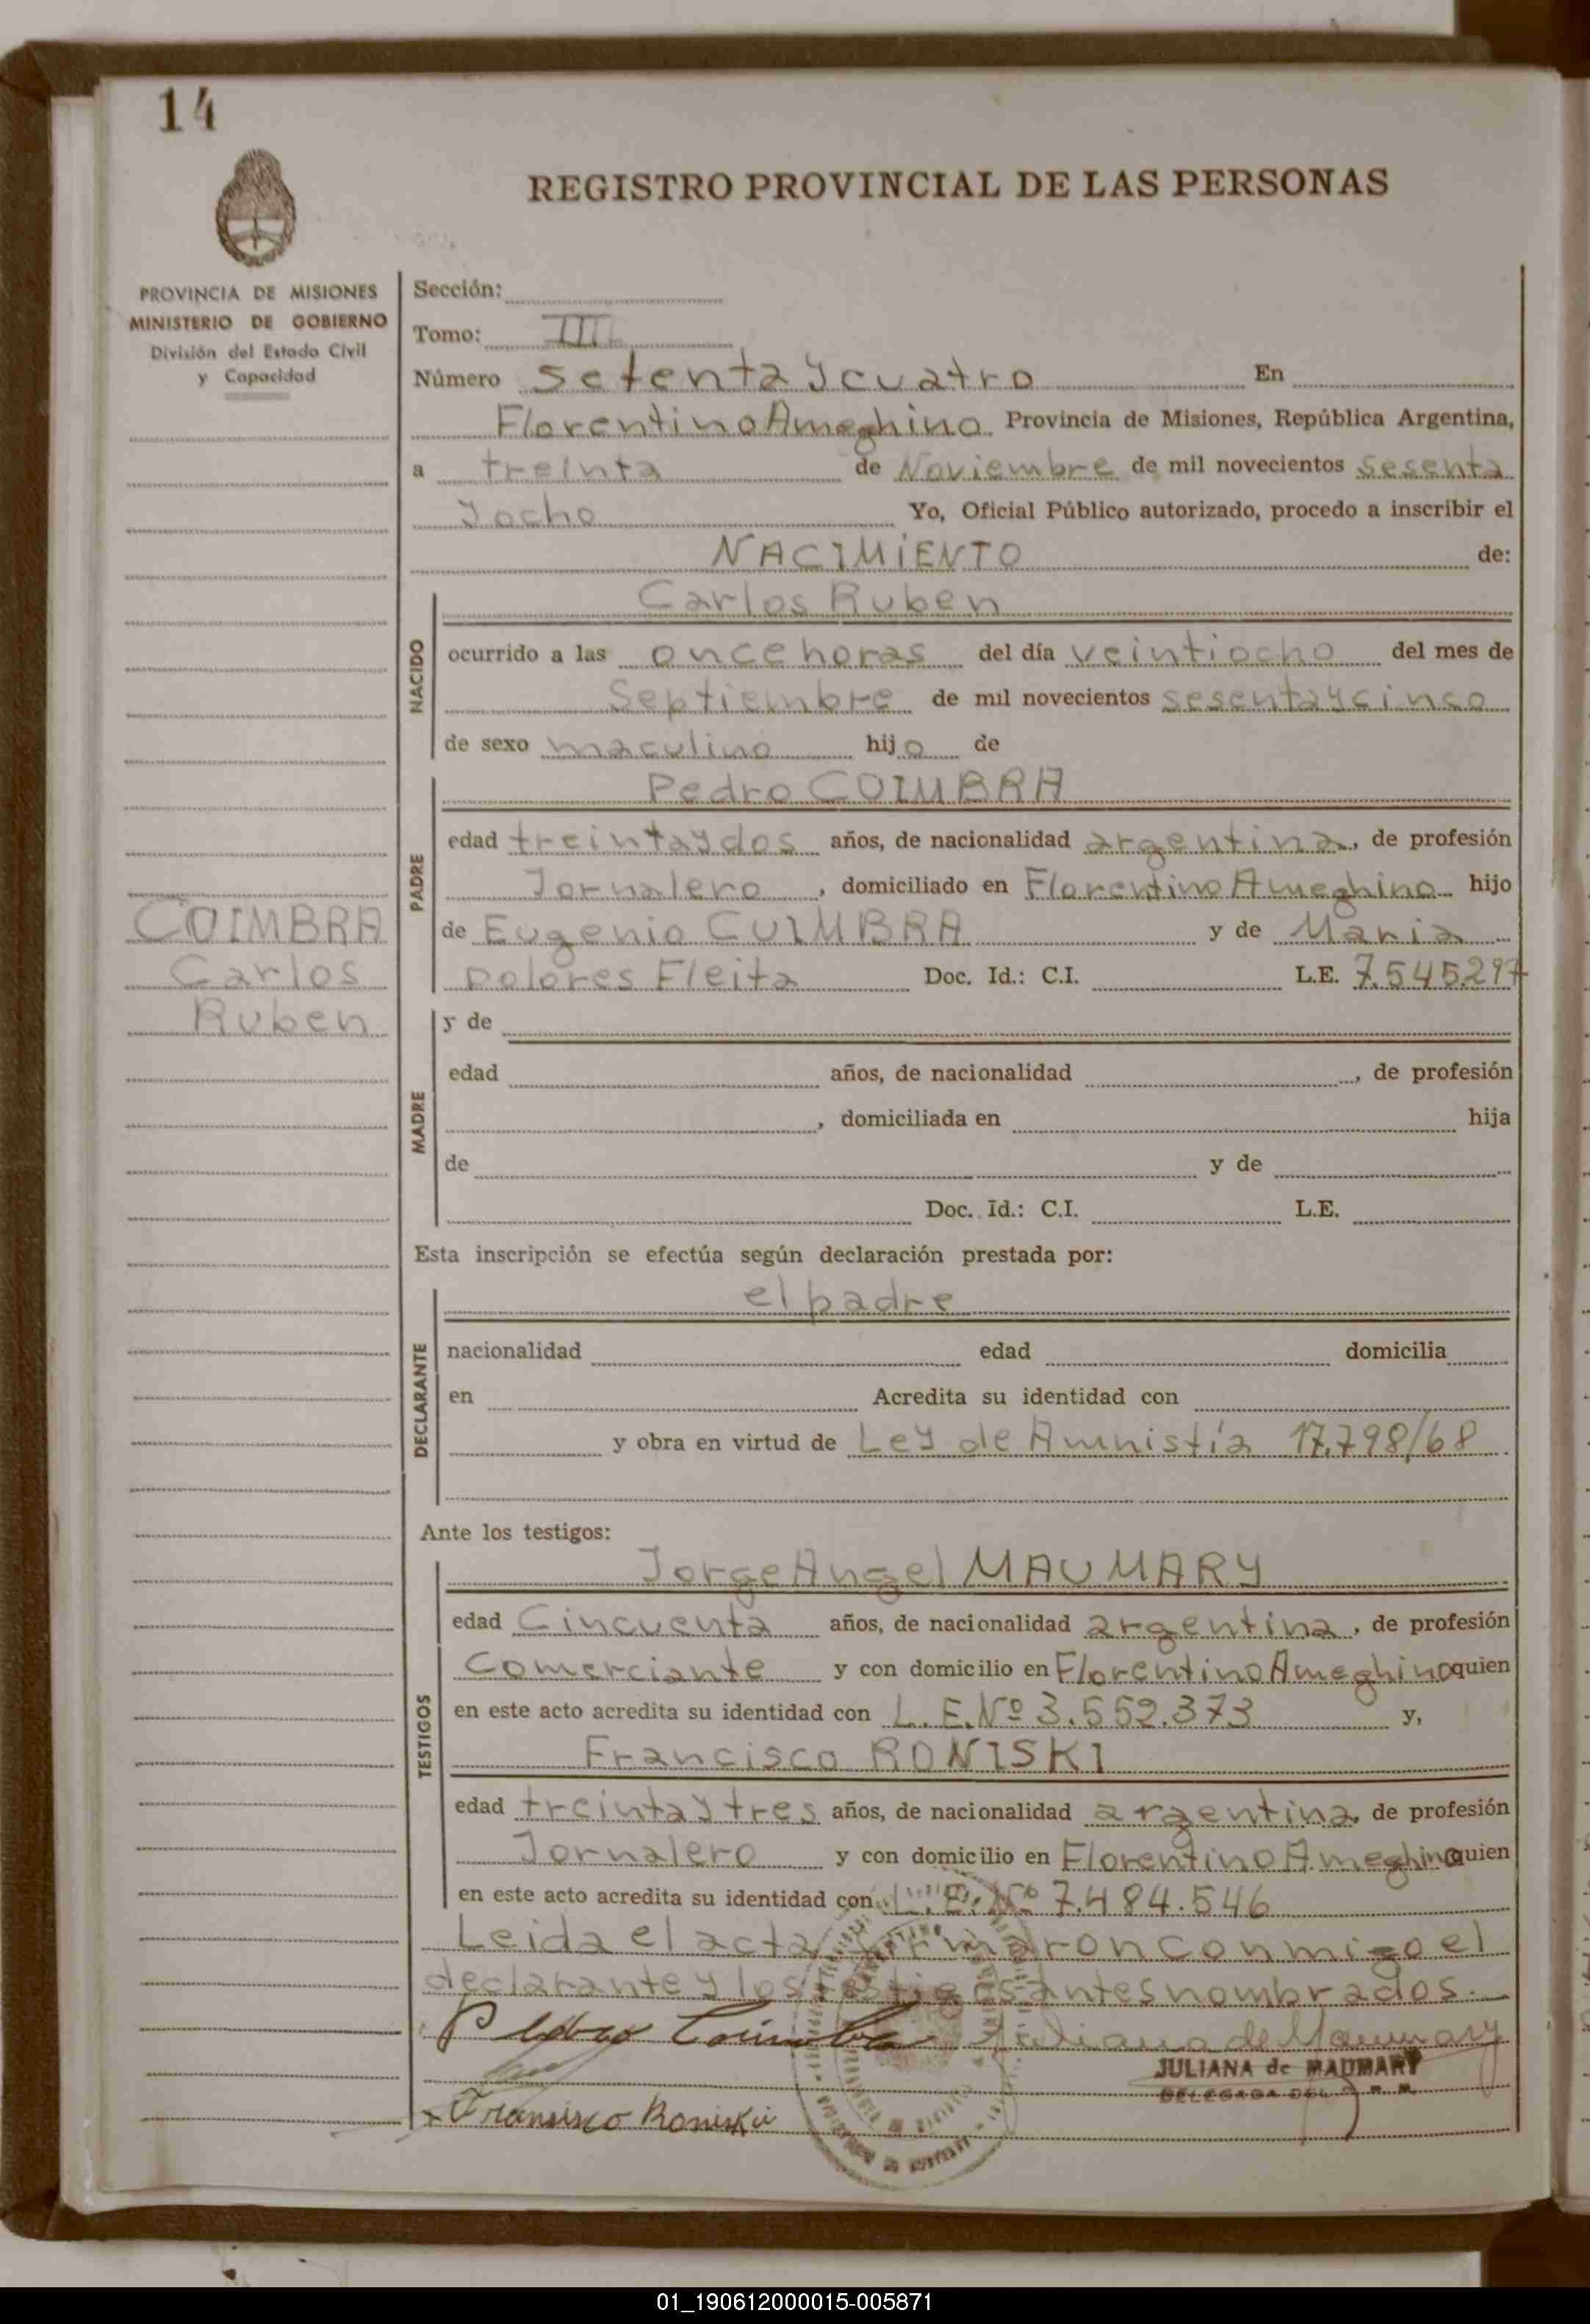 14
REGISTRO PROVINCIAL DE LAS PERSONAS
PROVINCIA DE MISIONES
MINISTERIO DE GOBIERNO
División del Estado Civil
y Capacidad
COIMBRA
Carlos
Ruben
Sección:
Tomo: III
Número setenta y cuatro En
Florentino Ameghino Provincia de Misiones, República Argentina,
a treinta de Noviembre de mil novecientos sesenta
y ocho Yo, Oficial Público autorizado, procedo a inscribir el
NACIMIENTO de:
NACIDO
Carlos Ruben
ocurrido a las once horas del día veintiocho del mes de
Septiembre de mil novecientos sesenta y cinco
de sexo maculino hijo de
PADRE
Pedro COIMBRA
edad treinta y dos años, de nacionalidad argentina, de profesión
Jornalero, domiciliado en Florentino Ameghino hijo
de Eugenio COIMBRA y de Maria
Dolores Fleita Doc. Id.: C.I. L.E. 7.545.297
MADRE
y de
edad años, de nacionalidad , de profesión
, domiciliada en hija
de y de
Doc. Id.: C.I. L.E.
Esta inscripción se efectúa según declaración prestada por:
DECLARANTE
el padre
nacionalidad edad domicilia
en Acredita su identidad con
y obra en virtud de Ley de Amnistía 17.798/68
Ante los testigos:
TESTIGOS
Jorge Angel MAUMARY
edad Cincuenta años, de nacionalidad argentina, de profesión
Comerciante y con domicilio en Florentino Ameghino quien
en este acto acredita su identidad con L.E. Nº 3.552.373 y,
Francisco RONISKI
edad treinta y tres años, de nacionalidad argentina, de profesión
Jornalero y con domicilio en Florentino Ameghino quien
en este acto acredita su identidad con L.E. Nº 7.484.546
Leida el acta firmaron conmigo el
declarante y los testigos antes nombrados.
Pedro Coimbra Juliana de Maumary
JULIANA de MAUMARY
DELEGADA DEL
Francisco Roniski
01_190612000015-005871